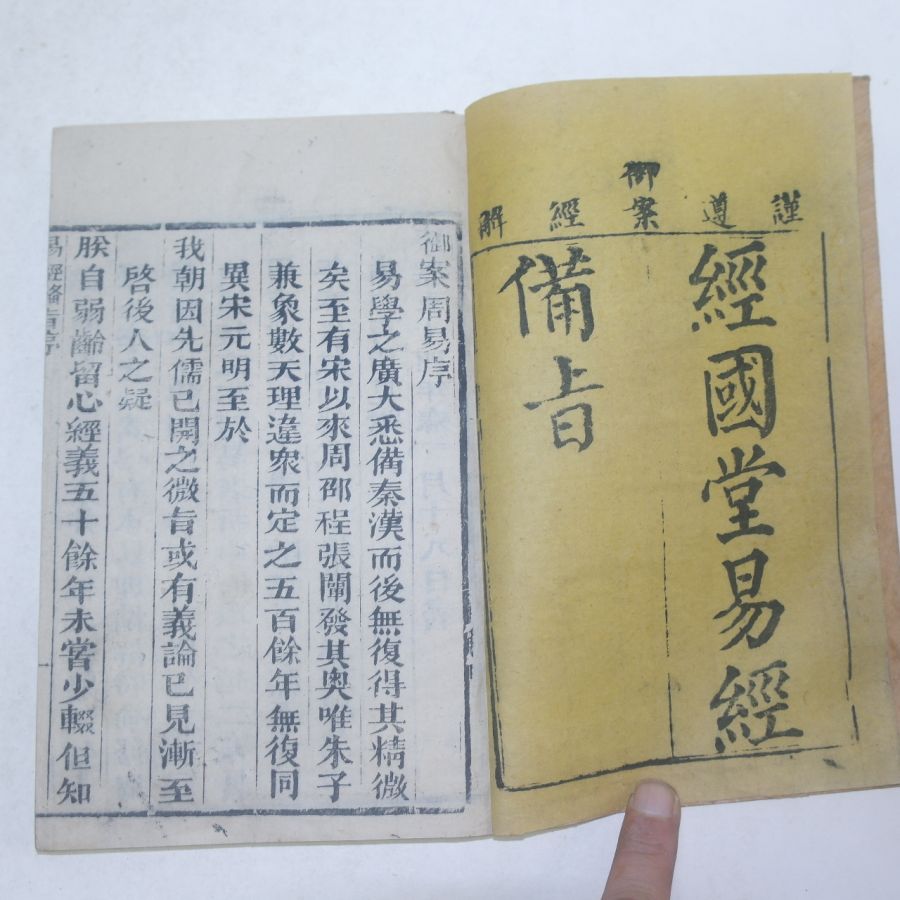 謹遵
御案
經解
經國堂易經
備旨
御案周易序
易學之廣大悉備秦漢而後無復得其精微
矣至有宋以來周邵程張闡發其奧唯朱子
兼象數天理違衆而定之五百餘年無復同
異宋元明至於
我朝因先儒已開之微旨或有義論已見漸至
啓後人之疑
朕自弱齡留心經義五十餘年未嘗少輟但知
易經備旨序